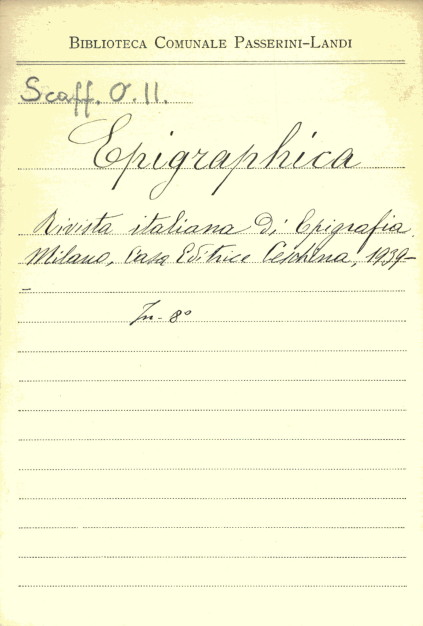 BIBLIOTECA COMUNALE PASSERINI-LANDI
Scaff. O. 11.
Epigraphica
Rivista italiana di Epigrafia.
Milano, Casa Editrice Ceschina, 1939-
-
In- 8°